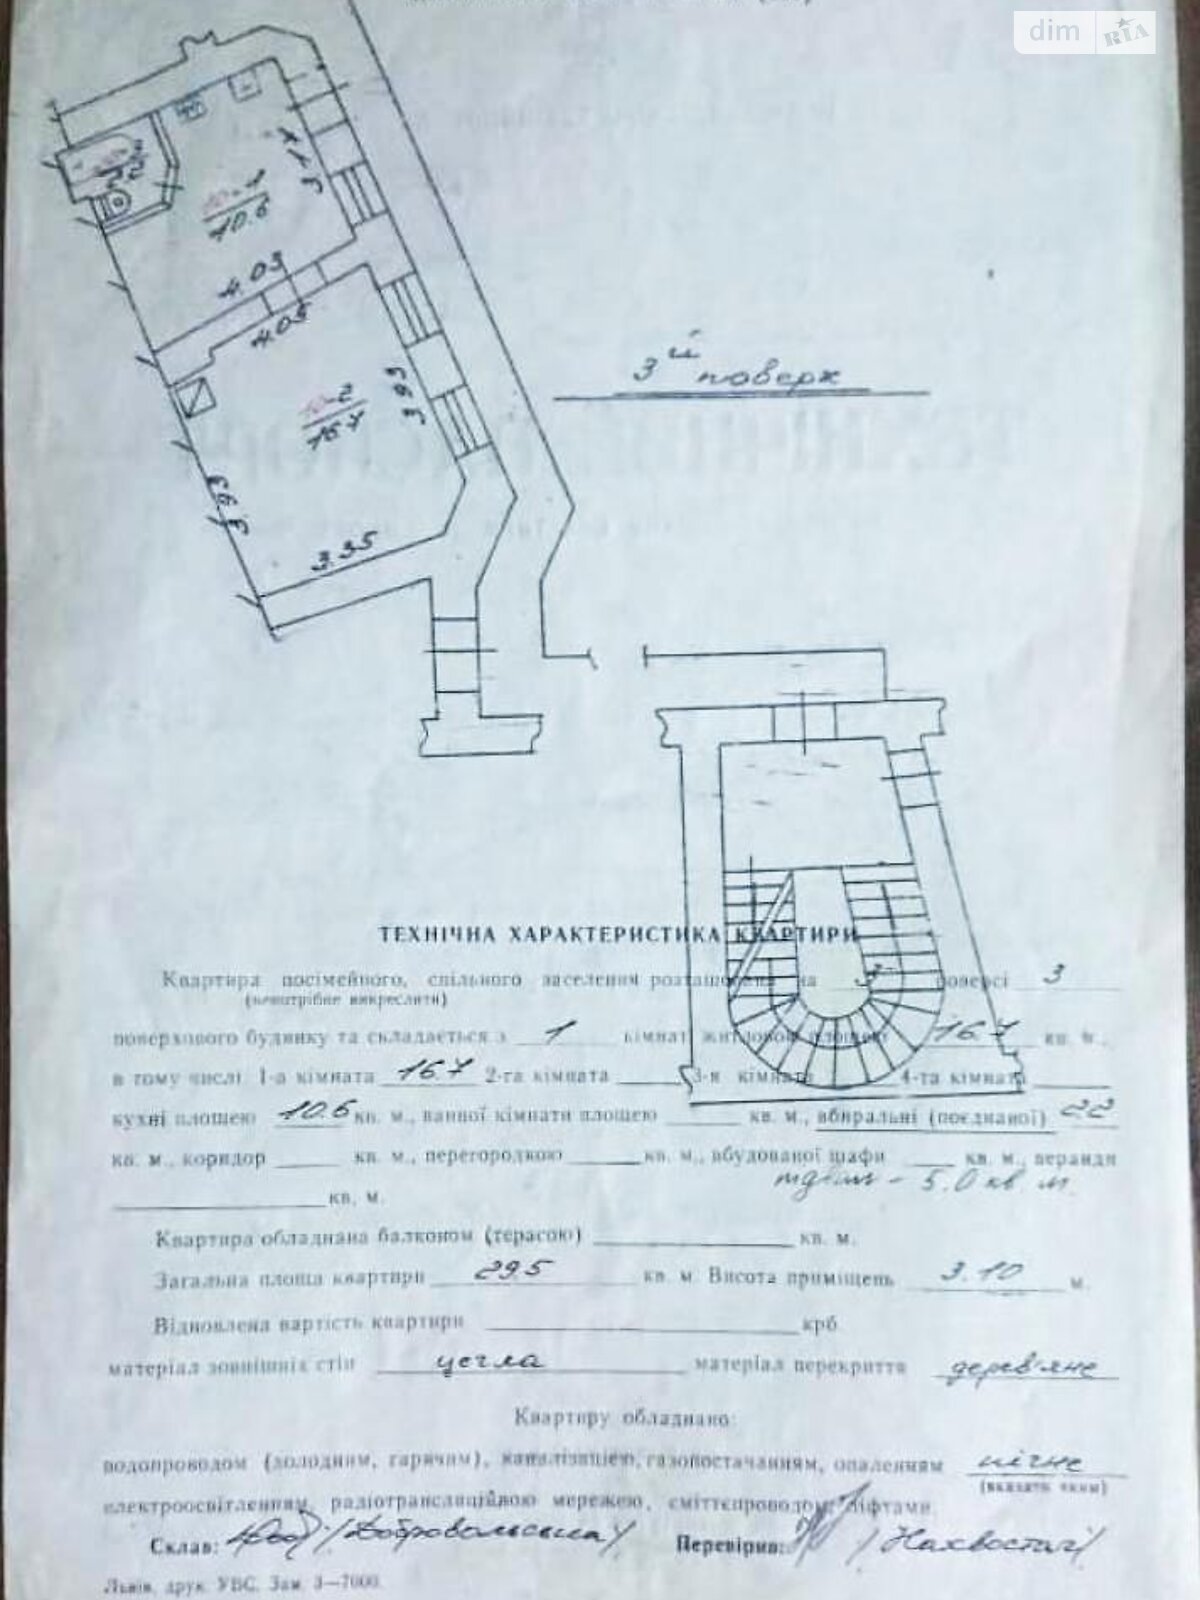 dim RIA
2.2
10-1
10.6
4.03
4.05
10-2
16.7
3.93
3.93
3.35
3й поверх
ТЕХНІЧНА ХАРАКТЕРИСТИКА КВАРТИРИ
Квартира посімейного, спільного заселення розташована на 3 поверсі 3
(непотрібне викреслити)
поверхового будинку та складається з 1 кімнат житловою площею 16.7 кв. м.,
в тому числі 1-а кімната 16.7 2-га кімната 3-я кімната 4-та кімната
кухні площею 10.6 кв. м., ванної кімнати площею кв. м., вбиральні (поєднаної) 2.2
кв. м., коридор кв. м., перегородкою кв. м., вбудованої шафи кв. м., веранди
кв. м. - 5.0 кв м.
Квартира обладнана балконом (терасою) кв. м.
Загальна площа квартири 29.5 кв. м. Висота приміщень 3.10 м.
Відновлена вартість квартири крб
матеріал зовнішніх стін цегла матеріал перекриття дерев'яне
Квартиру обладнано:
водопроводом (холодним, гарячим), каналізацією, газопостачанням, опаленням пічне
(вказати яким)
електроосвітленням, радіотрансляційною мережею, сміттєпроводом, ліфтами.
Склав: /Добровольська/ Перевірив:
Львів, друк. УВС. Зам. 3—7000